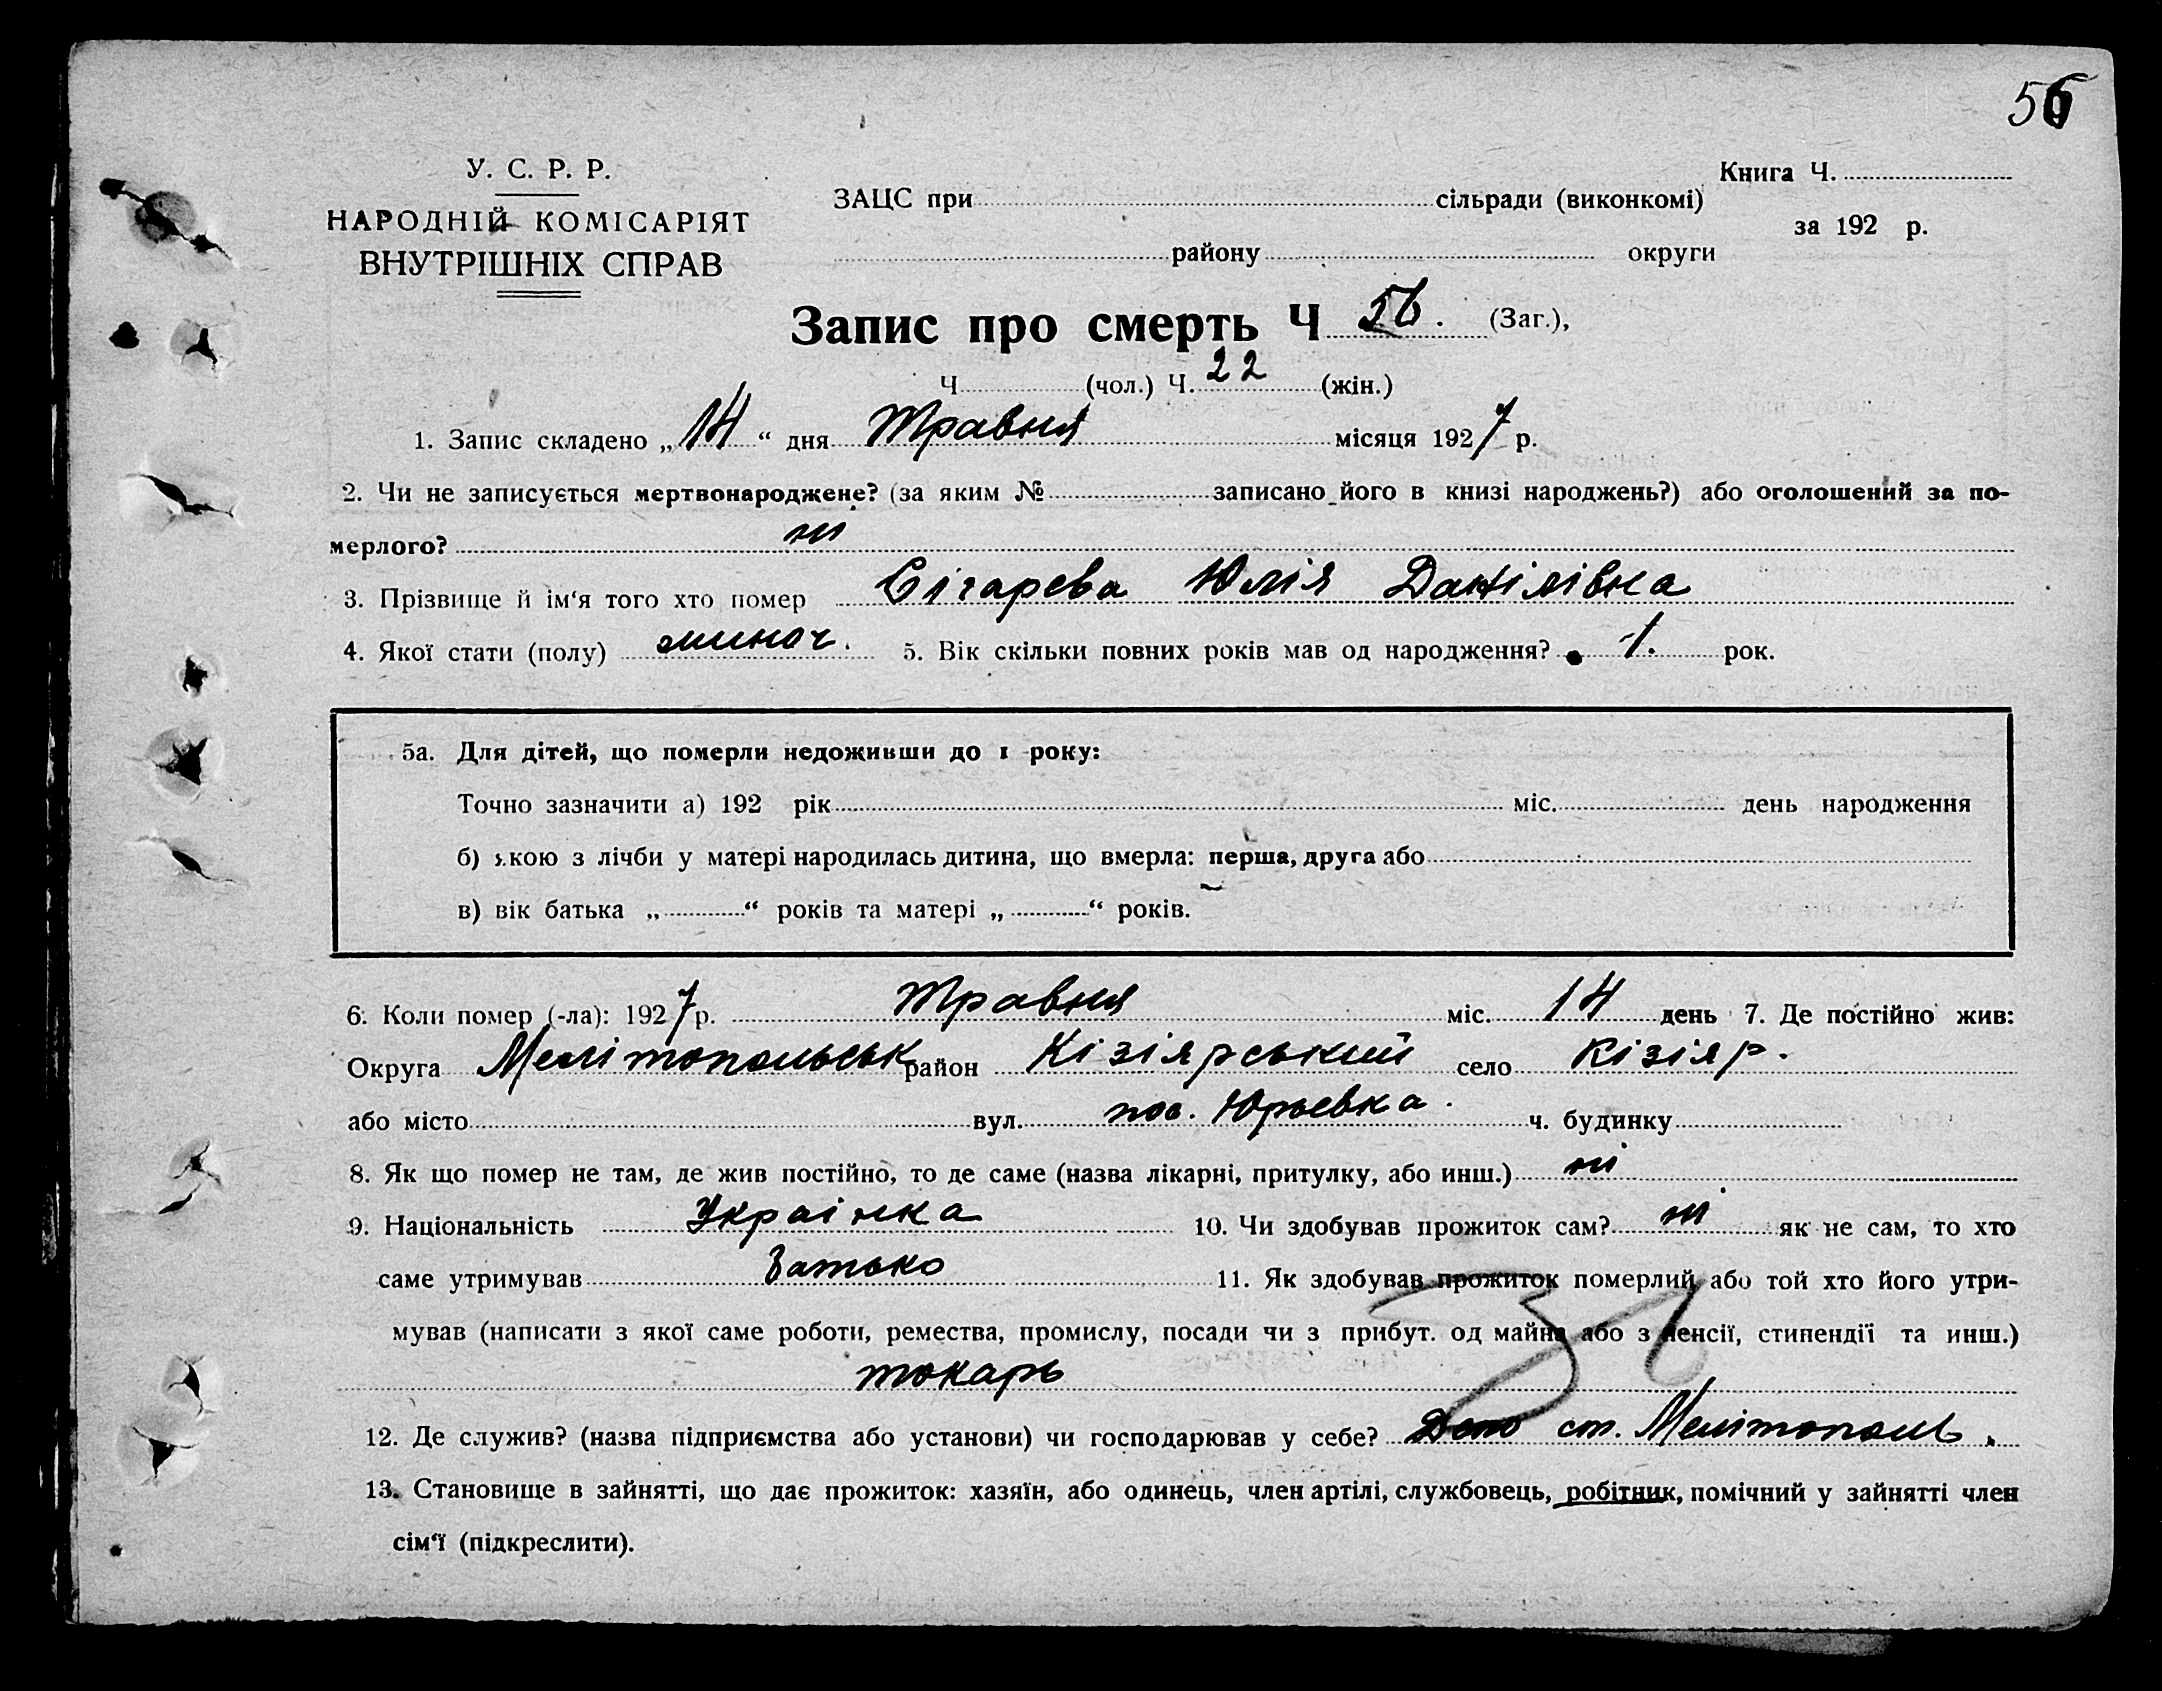 56
У. С. Р. Р.
НАРОДНІЙ КОМІСАРІЯТ
ВНУТРІШНІХ СПРАВ
Книга Ч.
за 192 р.
ЗАЦС при сільради (виконкомі)
району округи
Запис про смерть Ч 56. (Заг.),
Ч (чол.) Ч. 22 (жін.)
1. Запис складено „14“ дня Травня місяця 1927 р.
2. Чи не записується мертвонароджене? (за яким № записано його в книзі народжень?) або оголошений за по-
мерлого? ні
3. Прізвище й ім‘я того хто помер Сігарева Юлія Данілівна
4. Якої стати (полу) жиноч. 5. Вік скільки повних років мав од народження? 1. рок.
5а. Для дітей, що померли недоживши до 1 року:
Точно зазначити а) 192 рік міс. день народження
б) якою з лічби у матері народилась дитина, що вмерла: перша, друга або
в) вік батька „ “ років та матері „ “ років.
6. Коли помер (-ла): 1927 р. Травня міс. 14 день 7. Де постійно жив:
Округа Мелітопольськ район Кізіярський село Кізіяр.
або місто вул. пос. Юрьевка. ч. будинку
8. Як що помер не там, де жив постійно, то де саме (назва лікарні, притулку, або инш.) ні
9. Національність Украінка 10. Чи здобував прожиток сам? ні як не сам, то хто
саме утримував Батько 11. Як здобував прожиток померлий або той хто його утри-
мував (написати з якої саме роботи, ремества, промислу, посади чи з прибут. од майна або з пенсії, стипендії та инш.)
токарь
12. Де служив? (назва підприємства або установи) чи господарював у себе? Депо ст. Мелітополь.
13. Становище в зайнятті, що дає прожиток: хазяїн, або одинець, член артілі, службовець, робітник, помічний у зайнятті член
сім‘ї (підкреслити).